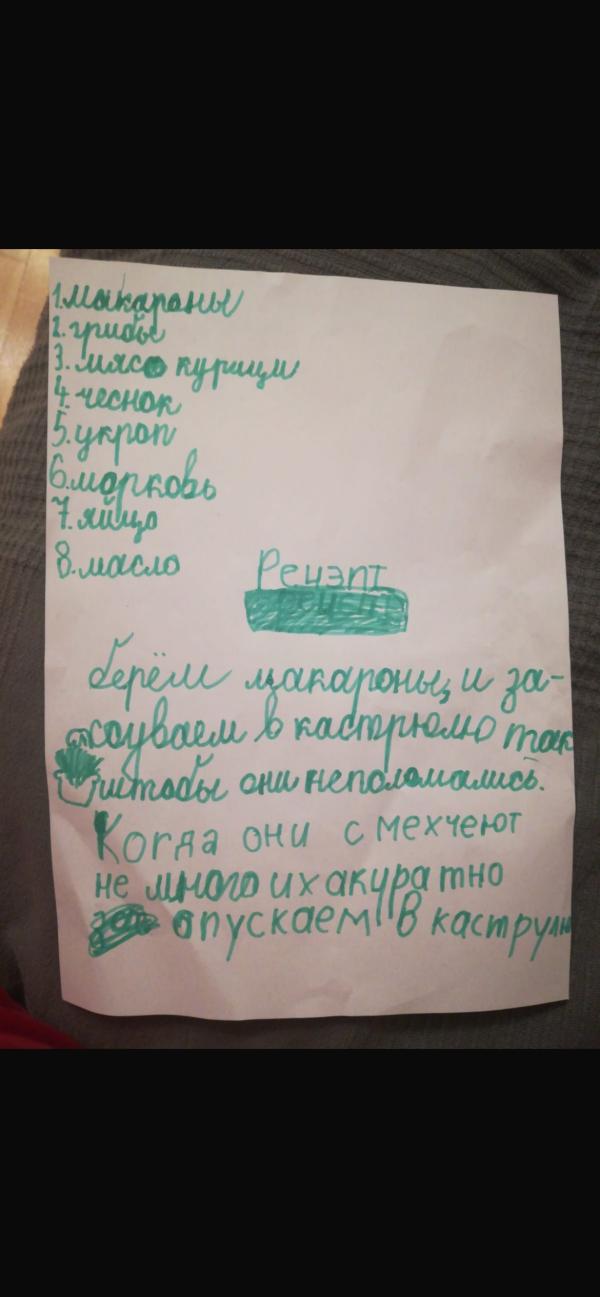 1.макароны
2.грибы
3.мясо курици
4.чеснок
5.укроп
6.морковь
7.яйцо
8.масло
Рецэпт
берём макароны, и за-
соуваем в кастрюлю так
штобы они неполомались.
Когда они смехчеют
не много их акуратно
опускаем в каструлю